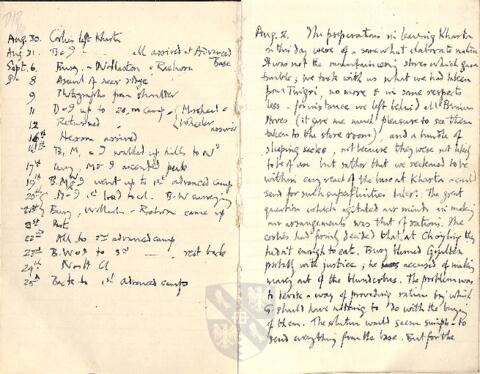 Aug 30. Coolies left Kharta
Aug 31. B & I all arrived at Advanced Base
Sept. 6. Bury - Wollaston - Raeburn
8 Ascent of near ridge
9 Photographs from shoulder
11 up to 20,000 camp Morshead Wheeler
12 Returned arrived
Heron arrived
B, M, & I walked up hills to N
17th Bury, M & I ascended peak
19 B. M & I went up to 1st advanced camp
20th & I load to B-W surveying
Bury, Wollaston - Raeburn came up
Rest
22nd All to 2nd advanced camp
23rd B. W & B to 3rd rest back
24th North Cl
25th Back to 1st advanced camp
Aug. 31. The preparations in leaving Kharta
on this day were of a somewhat elaborate nature
It was not the mountaineering stores which gave
trouble; we took with us what we had taken
from Tingri, no more & in some respects
less - for instance we left behind all Primus
stoves (it gave me much pleasure to see them
taken to the store room), and a bundle of
sleeping sacks, not because they were not likely
to be of use but rather that we reckoned to be
within easy reach of the base at Kharta & could
send for such superfluities later. The great
question which agitated our minds in making
our arrangements was that of rations. The
coolies had firmly decided that at Chöyling they
hadn't enough to eat. Bury blamed Gyalzen
probably with justice; he accused of making
money out of the blunderbus. The problem was
to devise a way of providing rations by which
G. should have nothing to do with the buying
of them. The solution would seem simple - to
send everything from the base. But for the